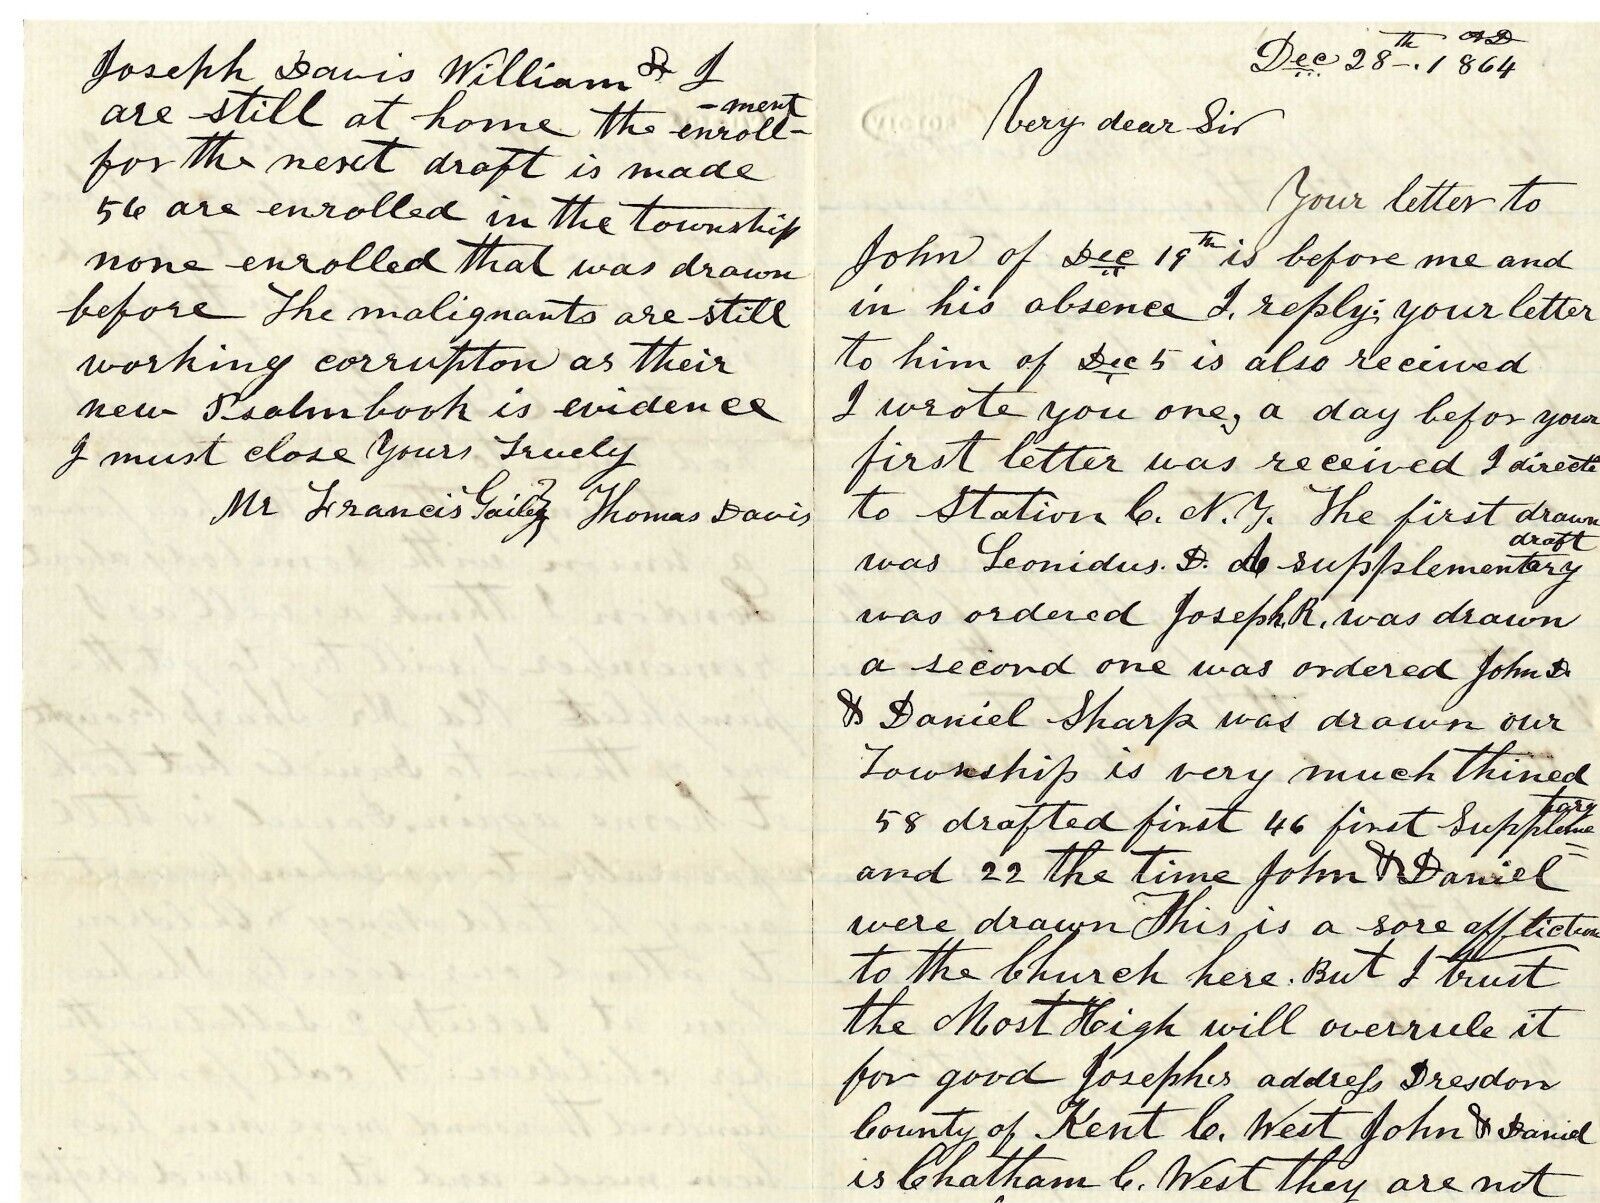 Dec 28th. 1864 AD
Very dear Sir
Your letter to
John of Dec 19th is before me and
in his absence I. reply; your letter
to him of Dec 5 is also recived
I wrote you one, a day befor your
first letter was received I directe
to Station C. N. Y. The first drawn
was Leonidus. D. A supplementary draft
was ordered Joseph. R. was drawn
a second one was ordered John D.
& Daniel Sharp was drawn our
Township is very much thined
58 drafted first 46 first Supplementary
and 22 the time John & Daniel
were drawn This is a sore affliction
to the Church here. But I trust
the Most High will overrule it
for good Josephs address Dresdon
County of Kent C. West John & Daniel
is Chatham C. West they are not
Joseph Davis William & I
are still at home the enroll-
-ment
for the next draft is made
56 are enrolled in the township
none enrolled that was drawn
before The malignants are still
working corrupton as their
new Psalmbook is evidence
I must close Yours Truely
Mr Francis Gailey Thomas Davis